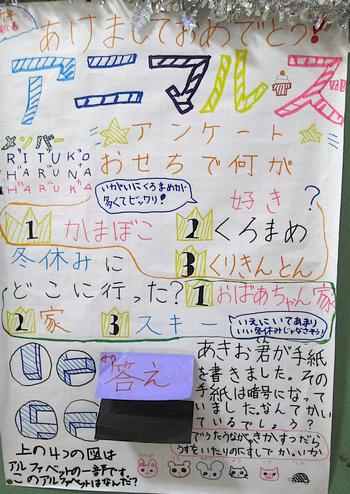 新春
あけましておめでとう!
アニマルズ
メンバー
RITUKO
HARUNA
HARUKA
☆アンケート☆
おせちで何が
好き?
いがいにくろまめが
多くてビックリ!
1 かまぼこ
2 くろまめ
3 くりきんとん
冬休みに
どこに行った?
1 おばあちゃん家
2 家
3 スキー
いえにいてあまり
いい冬休みじゃなさそう!
答え
あきお君が手紙
を書きました。その
手紙は暗号になって
いました。なんてかい
ているでしょう?
上の4つの図は
アルファベットの一部です。
このアルファベットはなんだ?